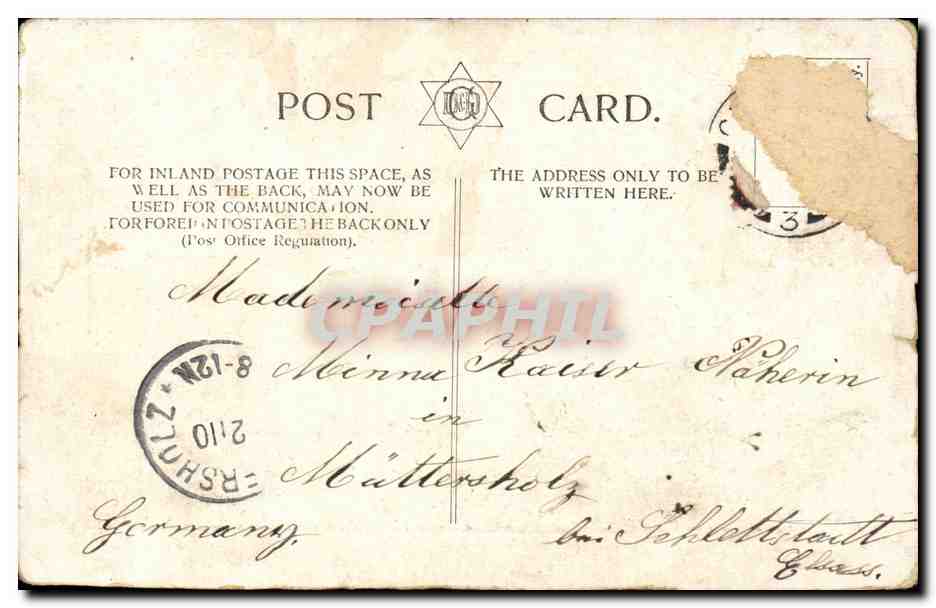 POST CARD.
FOR INLAND POSTAGE THIS SPACE, AS
WELL AS THE BACK, MAY NOW BE
USED FOR COMMUNICATION.
FOR FOREIGN POSTAGE THE BACK ONLY
(Post Office Regulation).
THE ADDRESS ONLY TO BE
WRITTEN HERE.
3
CPAPHIL
Mademoiselle
Minna Kaiser Näherin
in
Müttersholz
Germany.
bei Schlettstadt
Elsass.
8-12N
2.10
ERSHOLZ *